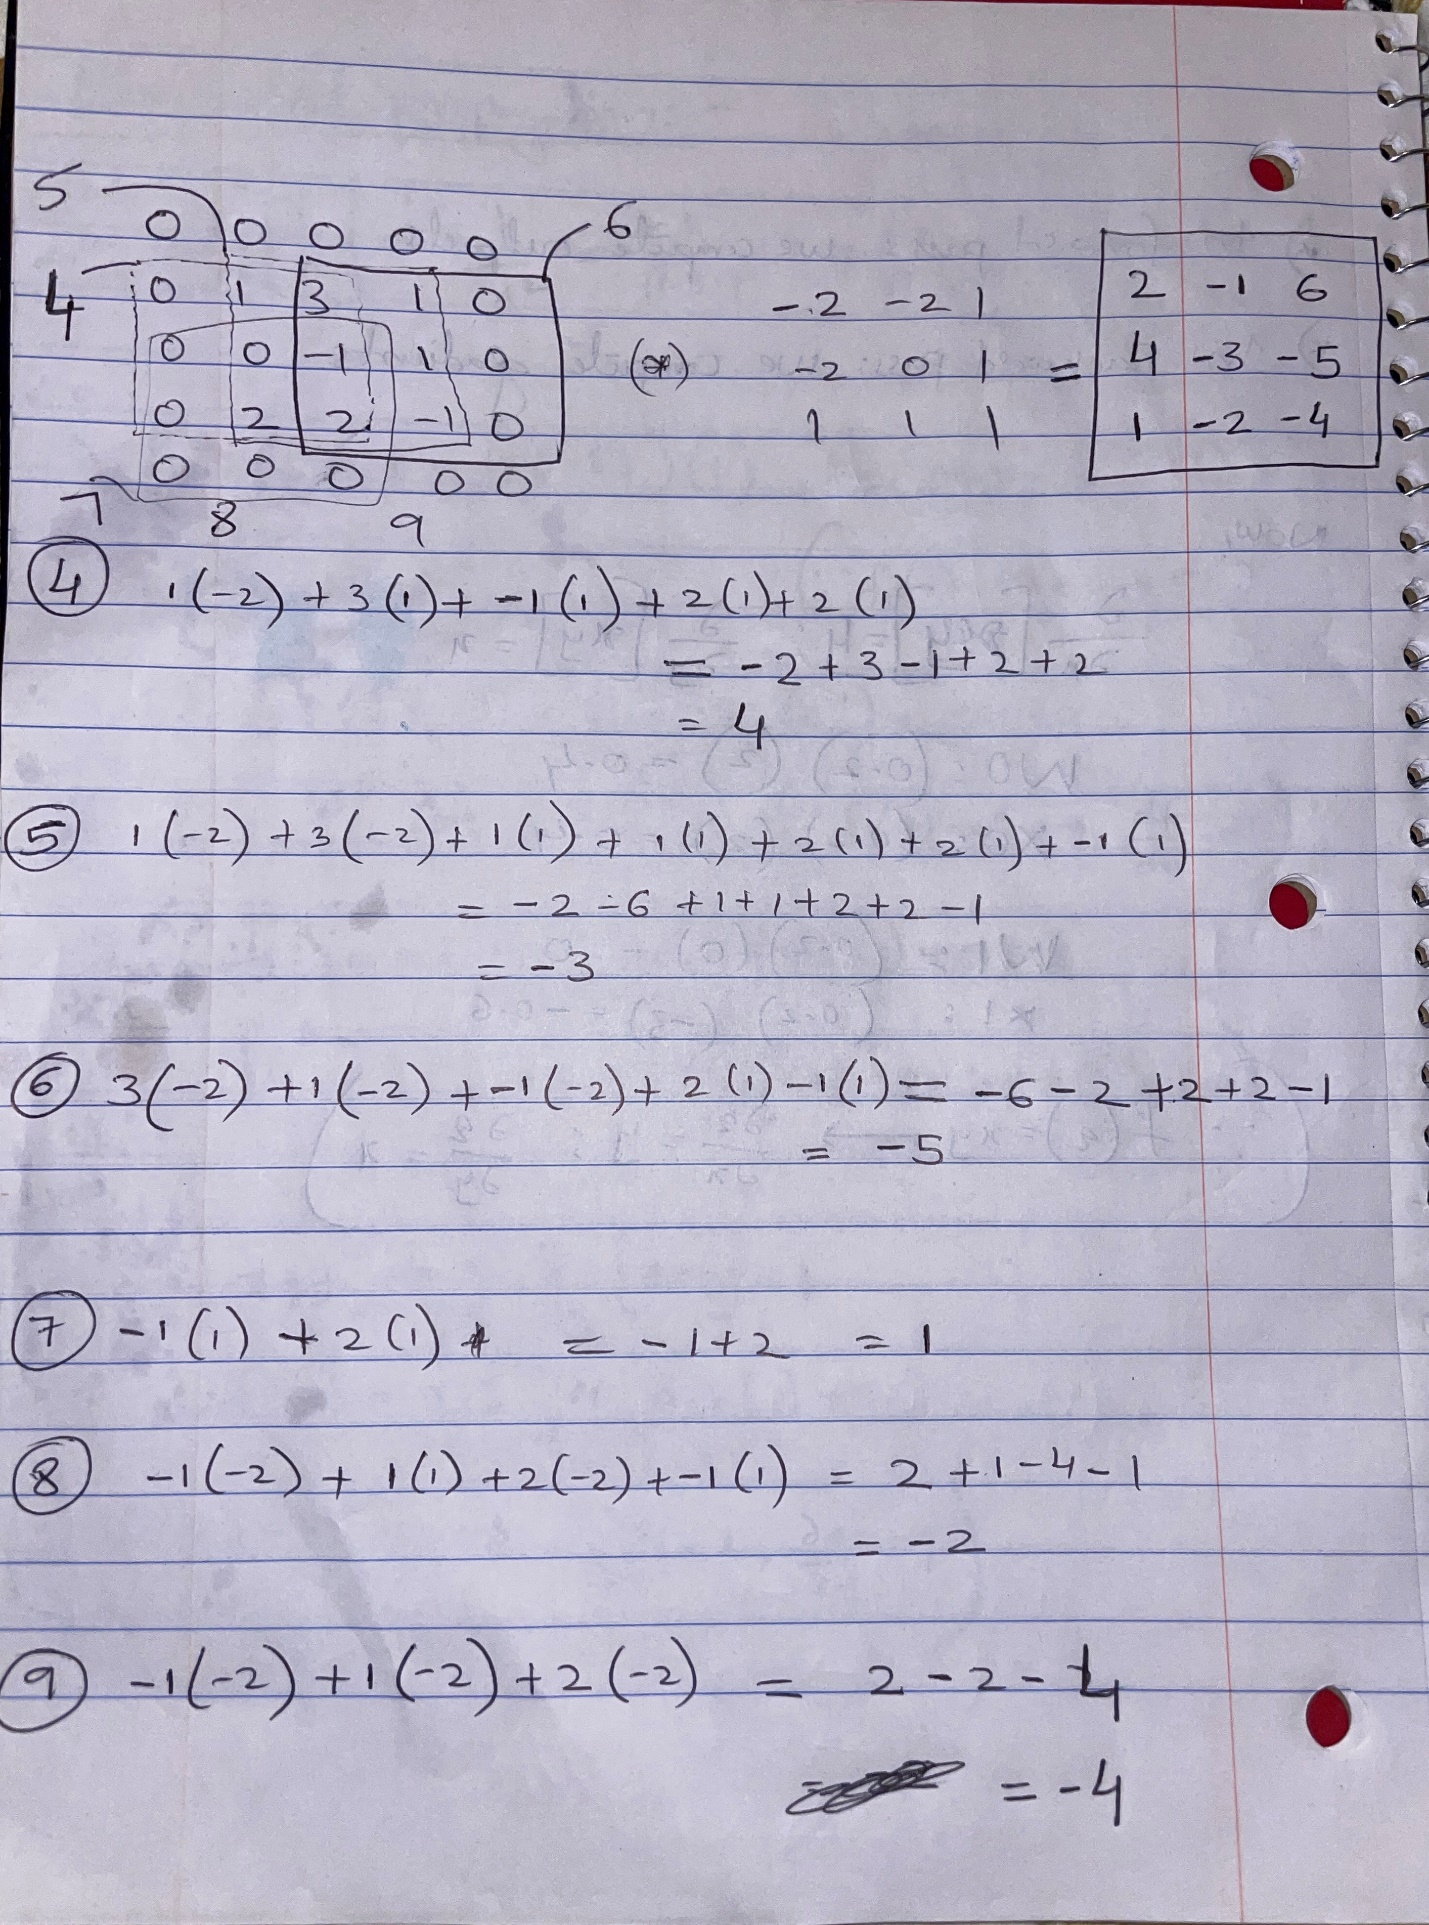 5
0 0 0 0 0 6
4 0 1 3 1 0 -2 -2 1 2 -1 6
0 0 -1 1 0 (*) -2 0 1 = 4 -3 -5
0 2 2 -1 0 1 1 1 1 -2 -4
0 0 0 0 0
7 8 9
④ 1(-2) + 3(1) + -1(1) + 2(1) + 2(1)
= -2 + 3 - 1 + 2 + 2
= 4
⑤ 1(-2) + 3(-2) + 1(1) + 1(1) + 2(1) + 2(1) + -1(1)
= -2 -6 +1+1+2+2-1
= -3
⑥ 3(-2) +1(-2) + -1(-2) + 2(1) -1(1) = -6 -2 +2+2-1
= -5
⑦ -1(1) + 2(1) = -1+2 = 1
⑧ -1(-2) + 1(1) +2(-2) + -1(1) = 2 +1-4-1
= -2
⑨ -1(-2) +1(-2) +2(-2) = 2-2-4
= -4